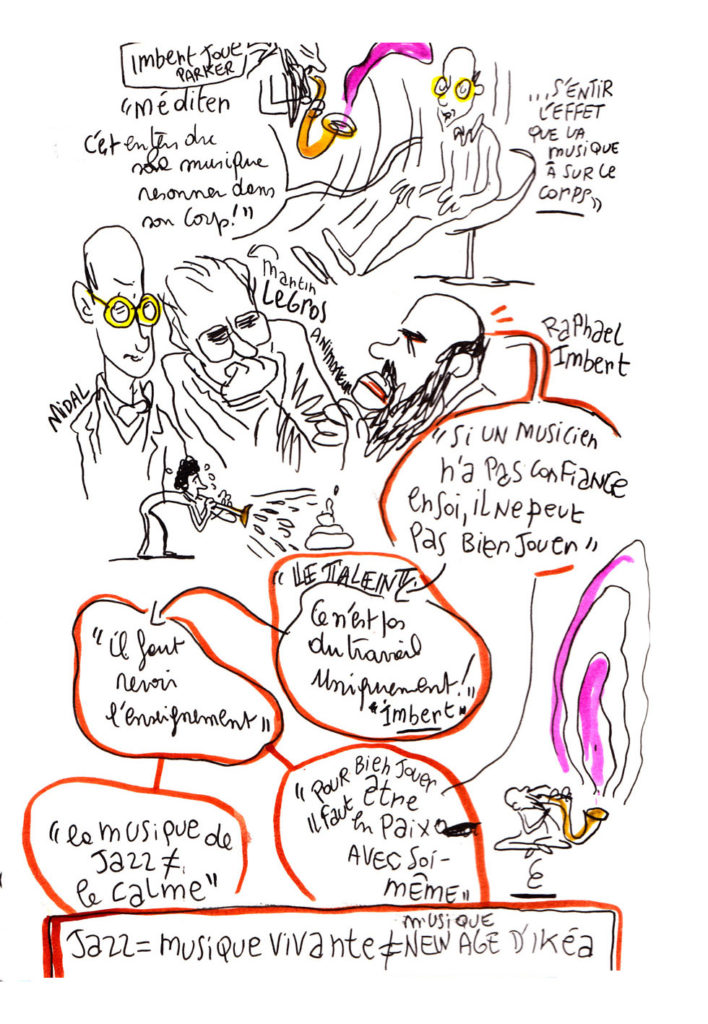 Imbert Joue
PARKER
"Méditer
c'est entendre
sa musique
resonner dans
son corps!"
...S'ENTIR
L'EFFET
QUE LA
MUSIQUE
À SUR LE
CORPS"
Martin
LEGROS
ANIMATEUR
NIDAL
RAPHAEL
IMBERT
"Si UN MUSiCiEN
n'a PAS CONFIANCE
EN SOI, iL NE PEUT
PAS BiEN JOUER"
"LE TALENT,
Ce n'est pas
du travail
Uniquement!"
"Imbert"
"il faut
revoir
l'enseignement"
"POUR BiEN JOUER
iL FAUT être
en PAiX
AVEC SOi-
MÊME"
"la musique de
JAZZ ≠
le calme"
JAZZ = MUSIQUE ViVANTE ≠ MUSIQUE
NEW AGE D'IKÉA